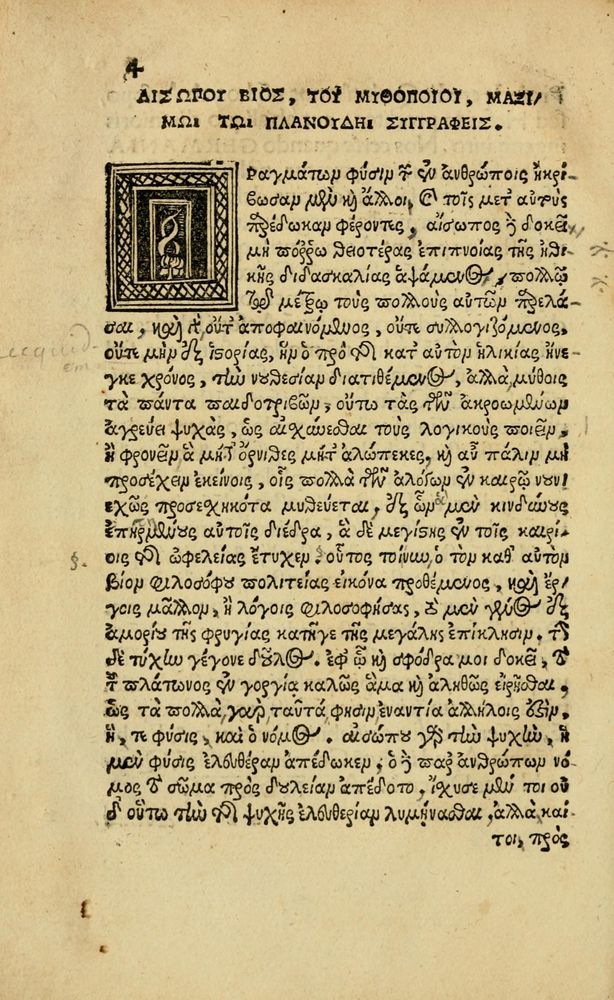 4
ΑΙΣΩΠΟΥ ΒΙΟΣ, ΤΟΥ ΜΥΘΟΠΟΙΟΥ, ΜΑΞΙ/
ΜΩΙ ΤΩΙ ΠΛΑΝΟΥΔΗΙ ΣΥΓΓΡΑΦΕΙΣ.
Πραγμάτων φύσιν τὴν ἐν ἀνθρώποις ἠκρί
βωσαν μὲν καὶ ἄλλοι, καὶ τοῖς μετ αὐτοὺς
παρέδωκαν φέροντες, αἴσωπος δὲ δοκεῖ
μὴ πόῤῥω θειοτέρας ἐπιπνοίας τῆς ἠθι
κῆς διδασκαλίας ἁψάμενος, πολλῷ
τῷ μέτρῳ τοὺς πολλοὺς αὐτῶν παρελά
σαι, καὶ γὰρ οὔτ ἀποφαινόμενος, οὔτε συλλογιζόμενος,
οὔτε μὴν ἐξ ἱστορίας, ἣν ὁ πρὸ τῆς κατ αὐτὸν ἡλικίας ἤνε
γκε χρόνος, τὴν νουθεσίαν διατιθέμενος, ἀλλὰ μύθοις
τὰ πάντα παιδοτριβῶν, οὕτω τὰς τῶν ἀκροωμένων
ἀγρεύει ψυχὰς, ὡς αἰσχύνεσθαι τοὺς λογικοὺς ποιεῖν,
ἢ φρονεῖν ἃ μήτ ὄρνιθες μήτ ἀλώπεκες, καὶ αὖ πάλιν μὴ
προσέχειν ἐκείνοις, οἷς πολλὰ τῶν ἀλόγων ἐν καιρῷ νουν/
εχῶς προσεσχηκότα μυθεύεται, ἐξ ὧν ἃ μὲν κινδύνους
ἐπηρμένους αὐτοῖς διέδρα, ἃ δὲ μεγίστης ἐν τοῖς καιρί/
οις τῆς ὠφελείας ἔτυχεν. οὗτος τοίνυν ὁ τὸν καθ αὑτὸν
βίον φιλοσόφου πολιτείας εἰκόνα προθέμενος, καὶ ἔρ/
γοις μᾶλλον, ἢ λόγοις φιλοσοφήσας, τὸ μὲν γένος ἐξ
ἀμορίου τῆς φρυγίας κατῆγε τῆς μεγάλης ἐπίκλησιν. τὴν
δὲ τύχην γέγονε δοῦλος. ἐφ ᾧ καὶ σφόδρα μοι δοκεῖ, τὸ
τοῦ πλάτωνος ἐν γοργίᾳ καλῶς ἅμα καὶ ἀληθῶς εἰρῆσθαι,
ὡς τὰ πολλὰ γὰρ ταῦτά φησιν ἐναντία ἀλλήλοις ἐστὶν,
ἥ, τε φύσις, καὶ ὁ νόμος. αἰσώπου γὰρ τὴν ψυχὴν, ἡ
μὲν φύσις ἐλευθέραν ἀπέδωκεν, ὁ δὲ παρ ἀνθρώπων νό
μος τὸ σῶμα πρὸς δουλείαν ἀπέδοτο, ἴσχυσε μέν τοι οὐ
δ οὕτω τὴν τῆς ψυχῆς ἐλευθερίαν λυμήνασθαι, ἀλλὰ καί
τοι, πρὸς